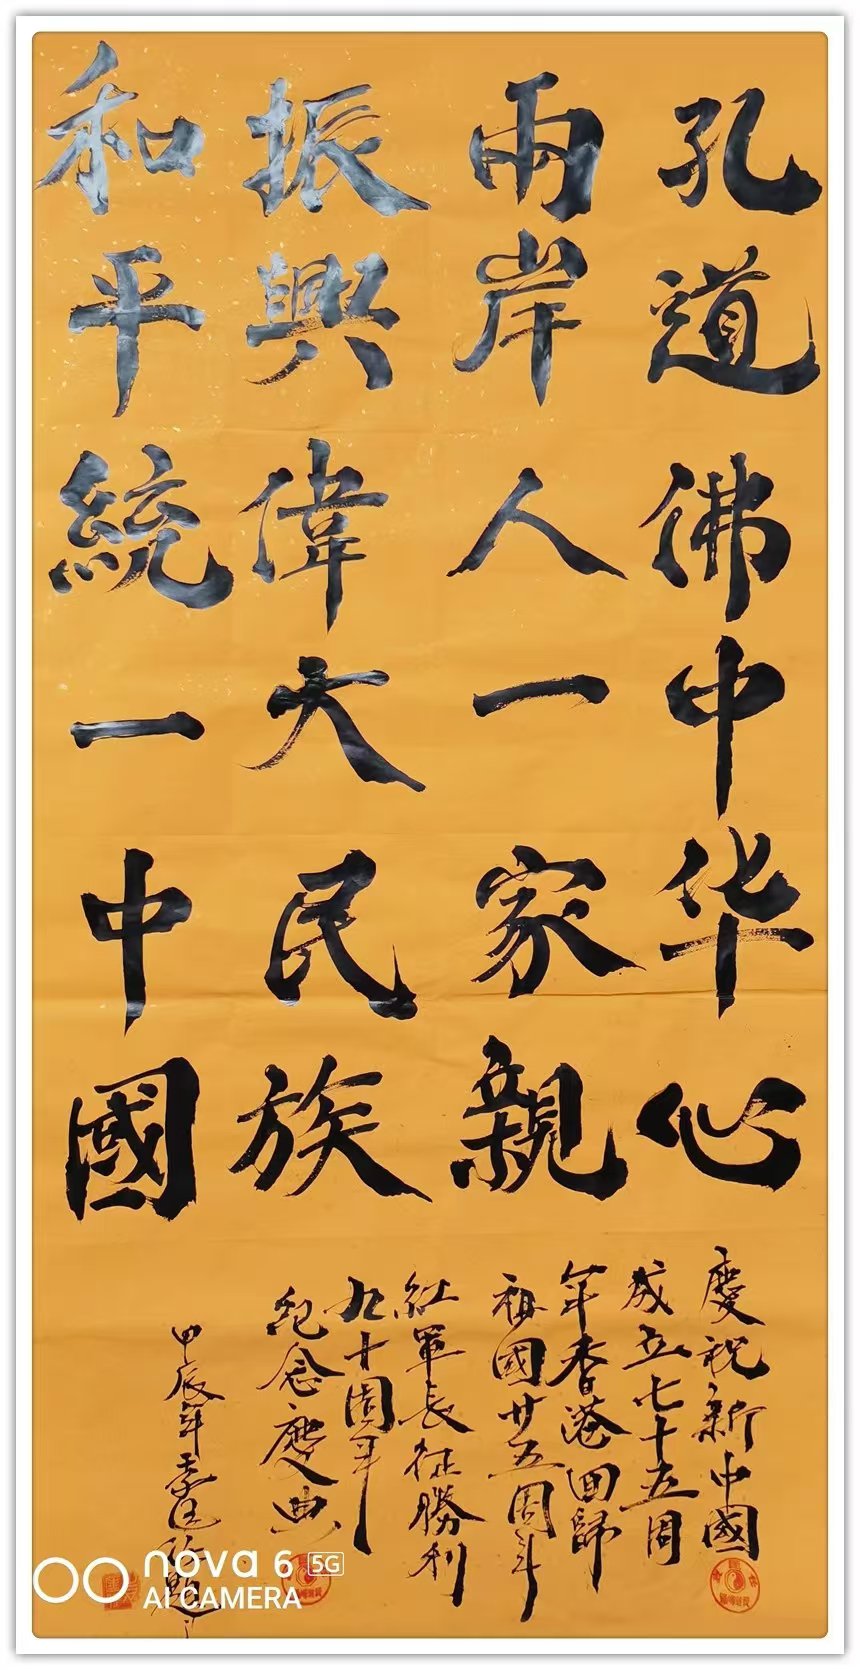 孔道佛中华心
兩岸人一家親
振興偉大民族
和平統一中國
慶祝新中國
成立七十五周
年香港回歸
祖國廿五周年
紅軍長征勝利
九十周年
紀念慶典
甲辰年
nova 6 5G
AI CAMERA